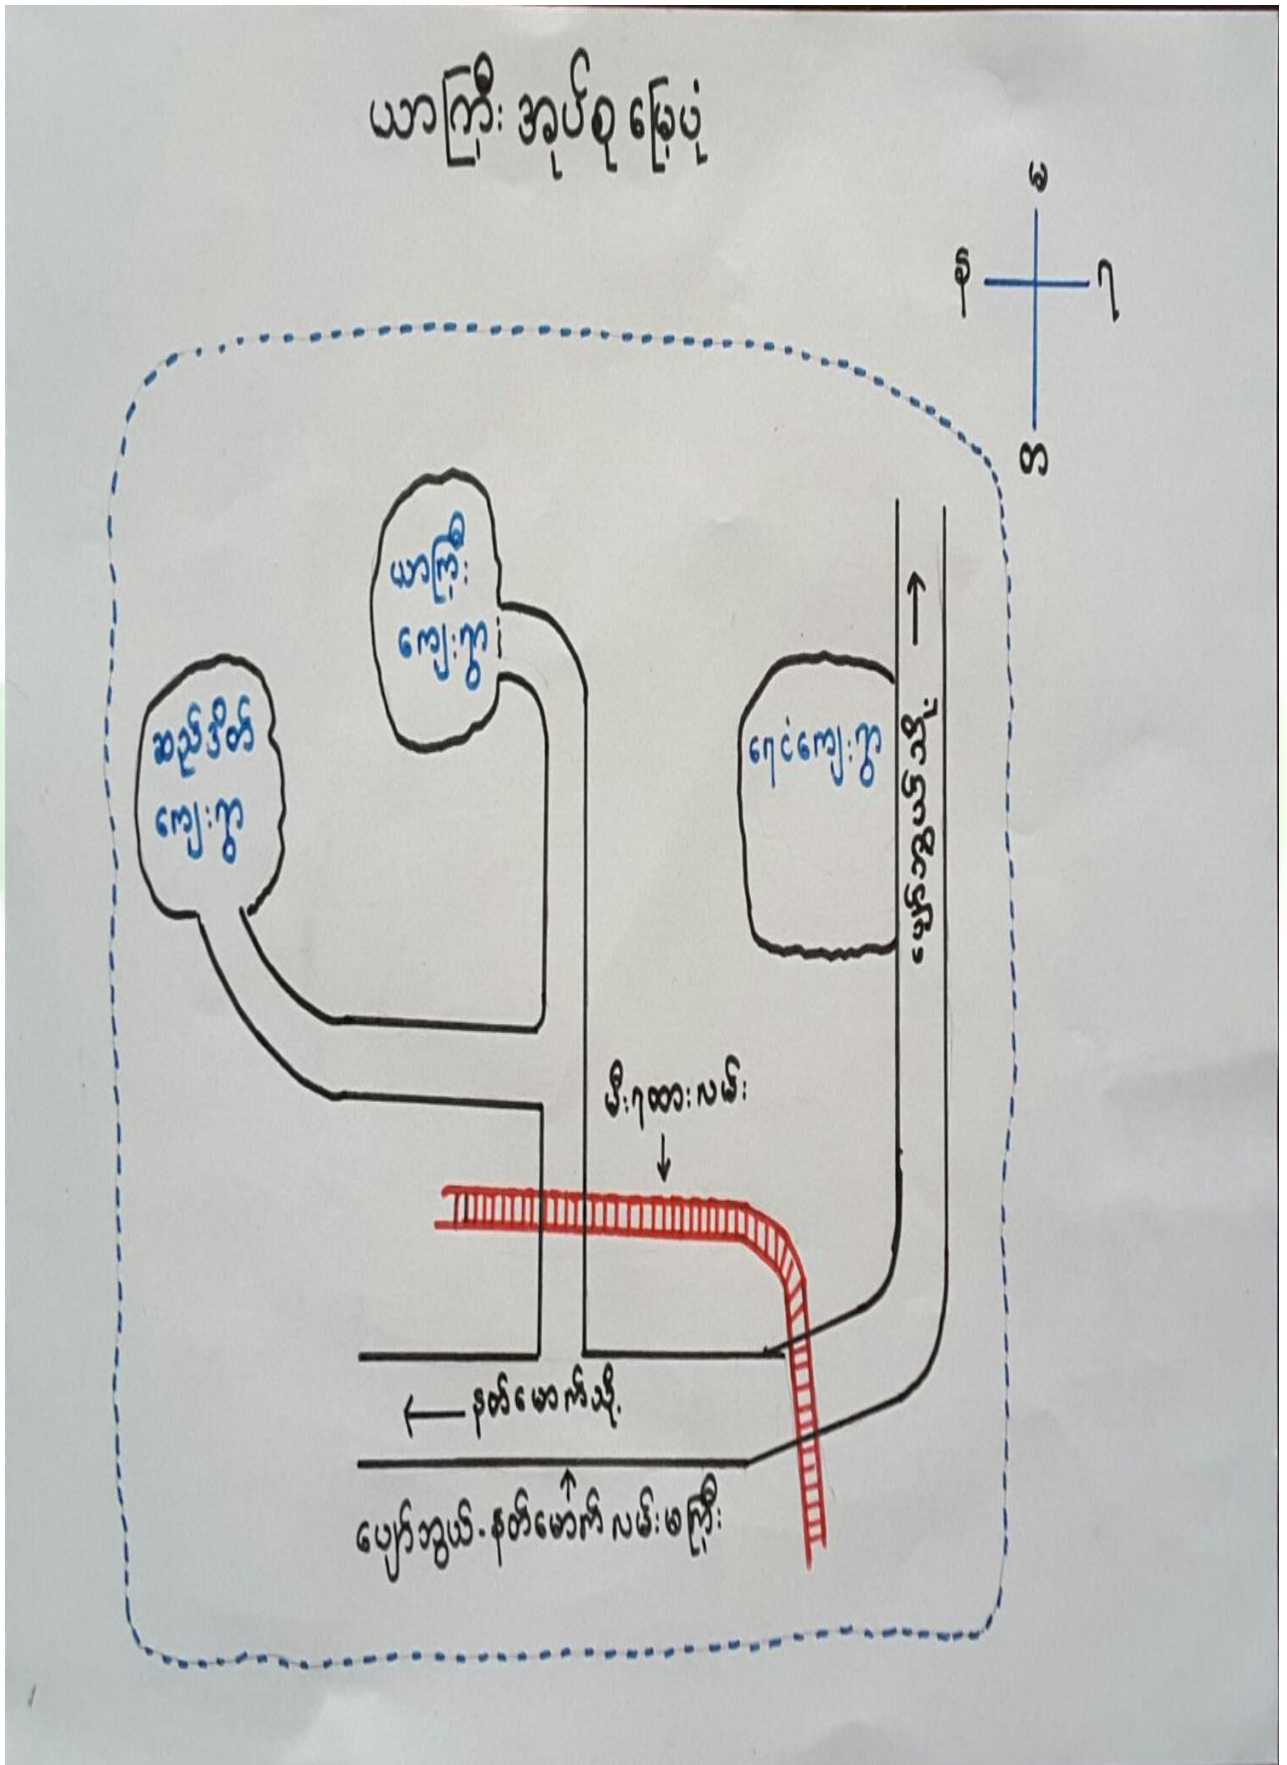 ယာကြီး အုပ်စု မြေပုံ
မ
န
ရ
တ
ယာကြီး
ကျေးရွာ
ဆည်ဒိတ်
ကျေးရွာ
ရေငံကျေးရွာ
ပျော်ဘွယ်သို့
မီးရထားလမ်း
နတ်မောက်သို့
ပျော်ဘွယ်-နတ်မောက် လမ်းမကြီး